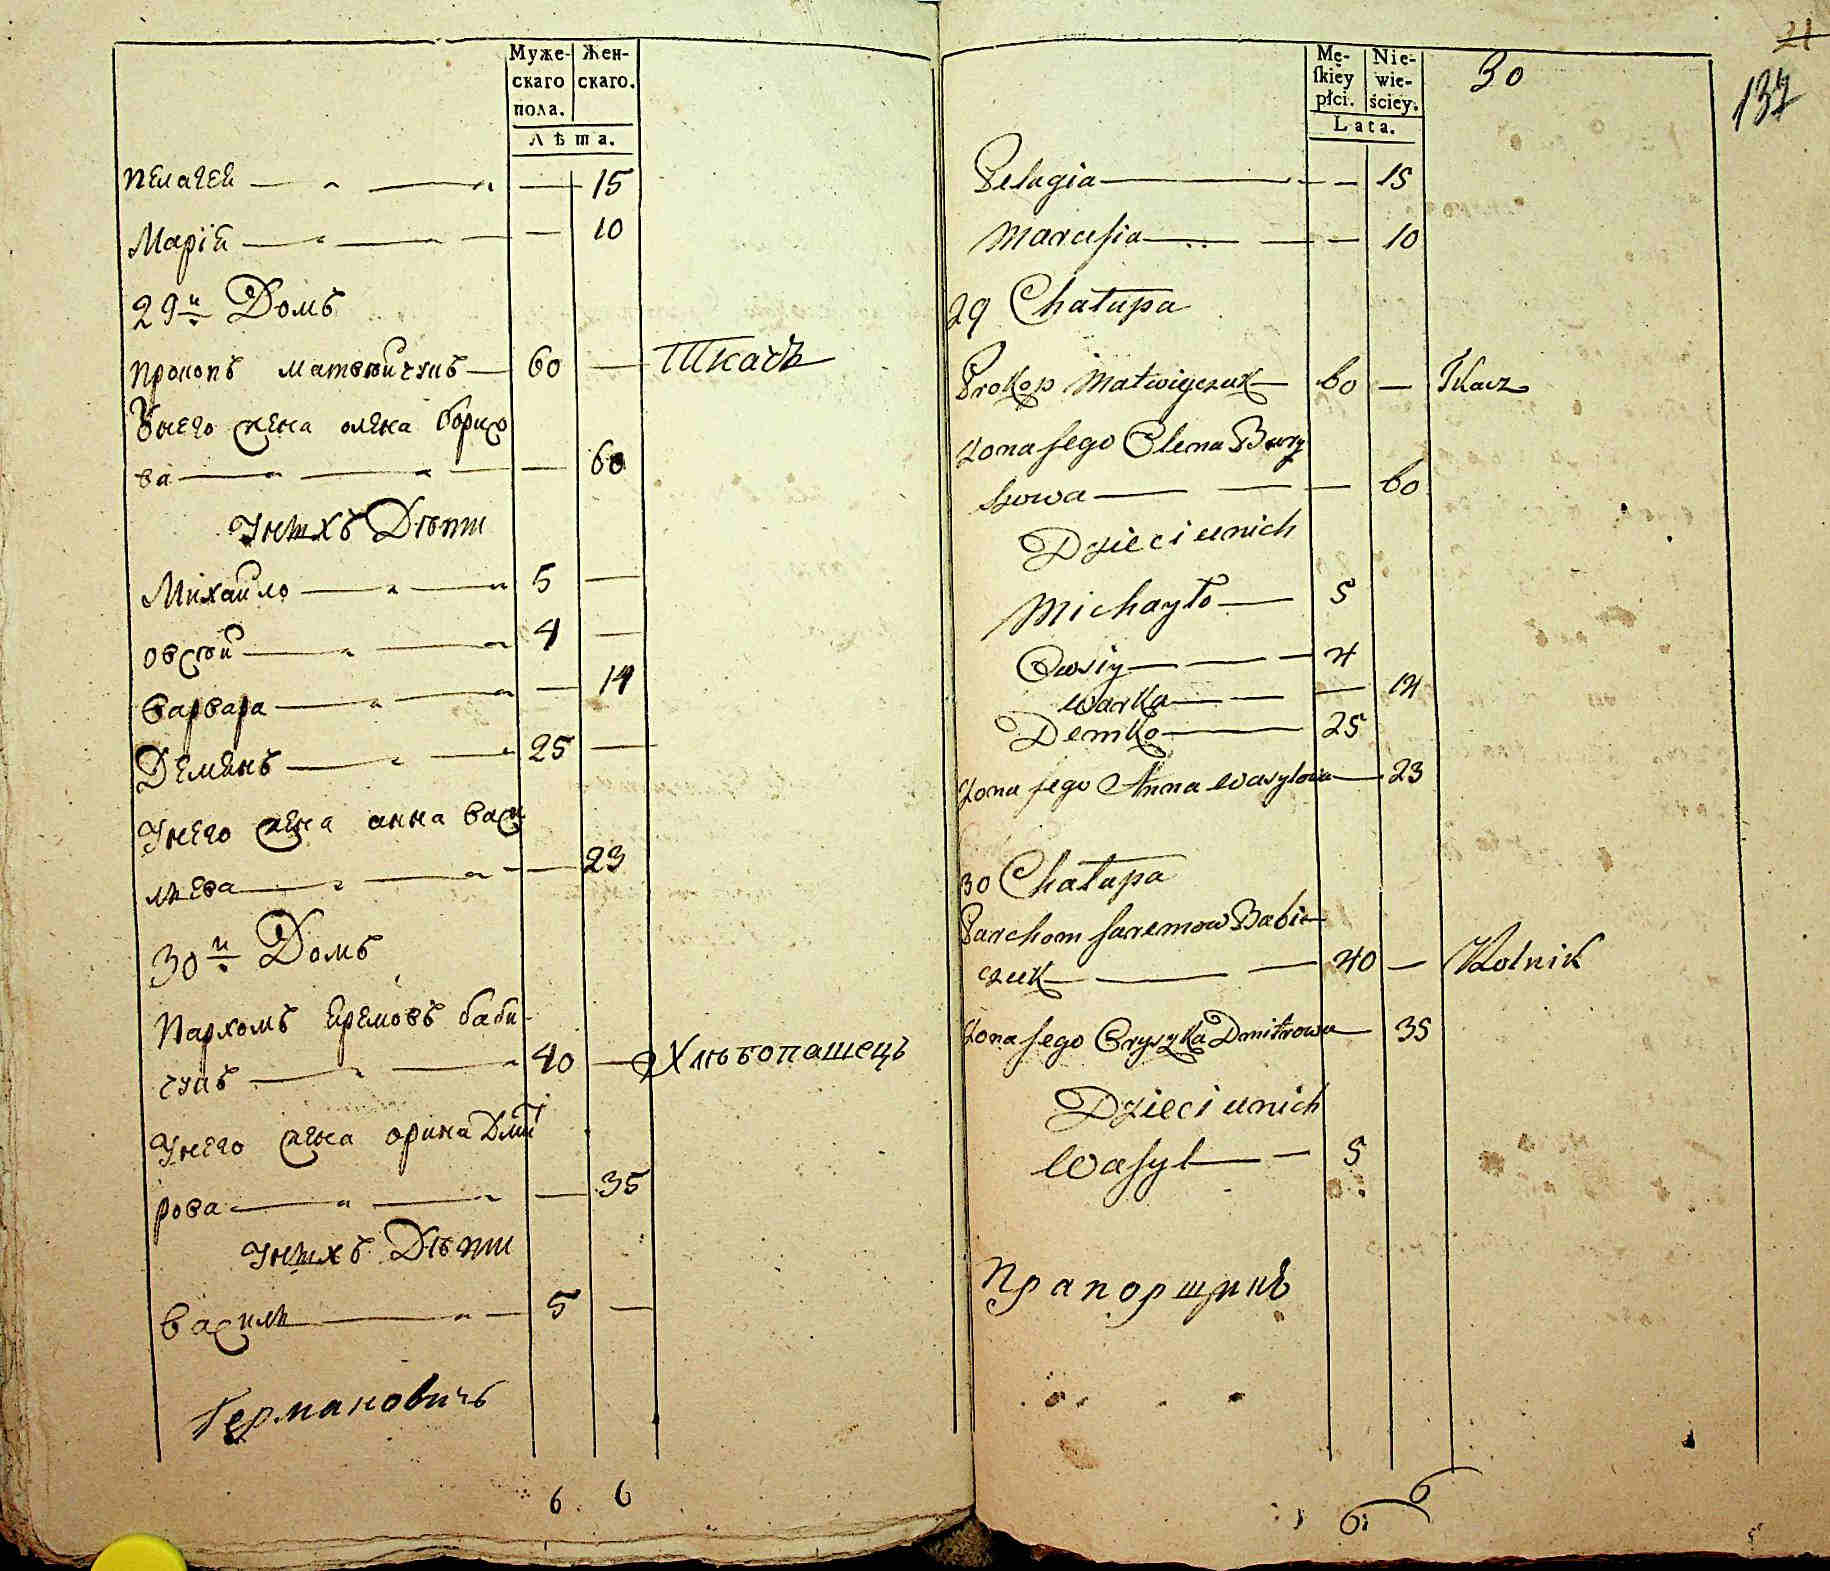 Муже- Жен-
скаго скаго.
пола.
Лѣта.
Пелагея 15
Марія 10
29й Домъ
Прокопъ Матвѣйчукъ 60 Ткачь
Унего жена олена борисо
ва 60
Унихъ Дѣти
Михайло 5
Овсѣй 4
Варвара 14
Деменъ 25
Унего жена анна васи
лева 23
30й Домъ
Пархомъ Еремовъ баби-
чукъ 40 Хлѣбопашецъ
Унего жена орина Дмит
рова 35
Унихъ Дѣти
Васили 5
Германовичъ
6 6
21
30
137
Mę- Nie-
skiey wie-
płci. ściey.
Lata.
Pelagia 15
Marusia 10
29 Chałupa
Prokop Matwiyczuk 60 Tkacz
Zona jego Olena Bory
sowa 60
Dzieci unich
Michayło 5
Owsiy 4
Warka 14
Demko 25
Zona jego Anna Wasylowa 23
30 Chałupa
Parchom Jaremow Babi-
czuk 40 Rolnik
Zona jego Oryszka Dmitrowa 35
Dzieci unich
Wasyl 5
Прапорщикъ
6 6